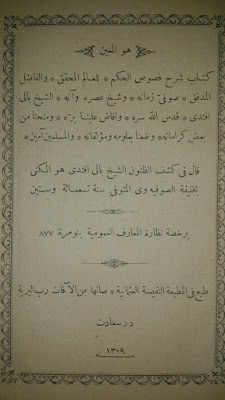 هو المعين
كتاب شرح فصوص الحكم * للعالم المحقق * والفاضل
المدقق * صوفئ زمانه * وشيخ عصره وآنه * الشيخ بالى
افندى * قدس الله سره * وافاض علينا بره * ومنحنا من
بعض كراماته * ونفعنا بعلومه ومؤلفاته * والمسلمين آمين *
قال فى كشف الظنون الشيخ بالى افندى هو المكنى
بخليفة الصوفيه وى المتوفى سنة تسعمائة وستين
برخصة نظارة المعارف العمومية بنومرة ٨٧٧
طبع فى المطبعة النفيسة العثمانية * صانها عن الآفات رب البرية
درسعادت
١٣٠٩